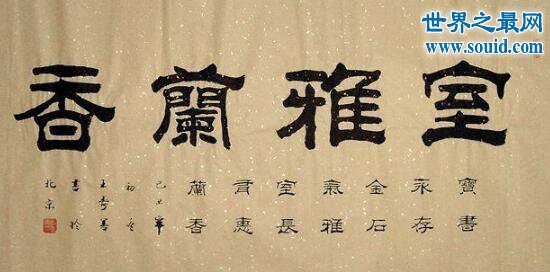 世界之最网
www.souid.com
室雅蘭香
寶書
永存
金石
氣雅
室長
有惠
蘭香
己丑年
初冬
王善
書於
北京